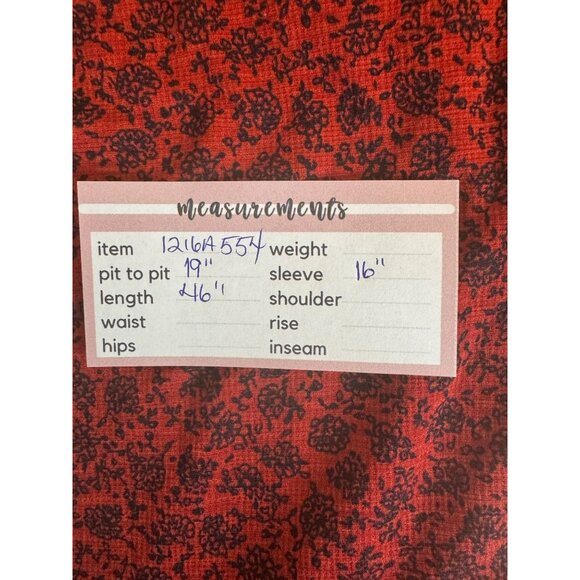 measurements
item 1216A554 weight
pit to pit 19" sleeve 16"
length 46" shoulder
waist rise
hips inseam